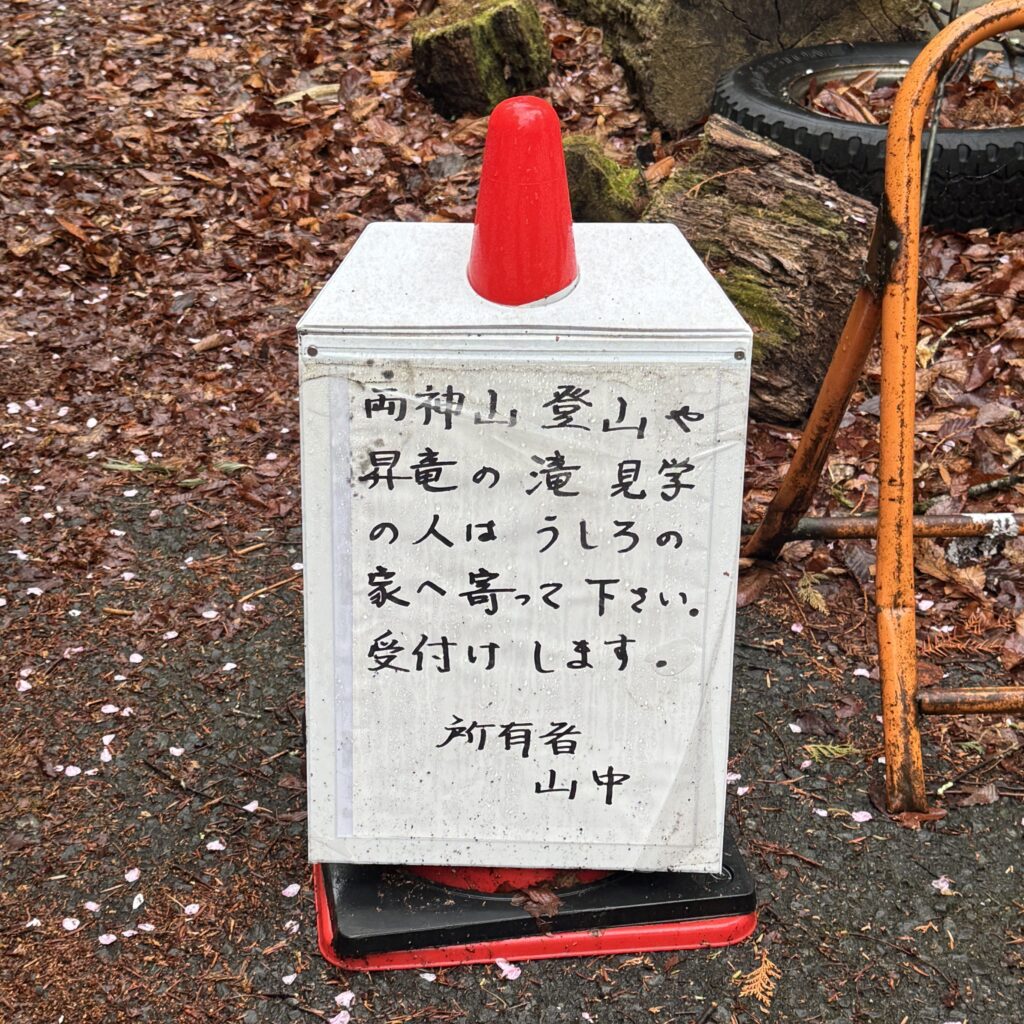 両神山 登山や
昇竜の 滝 見学
の人は うしろの
家へ寄って下さい。
受付けします。
所有者
山中